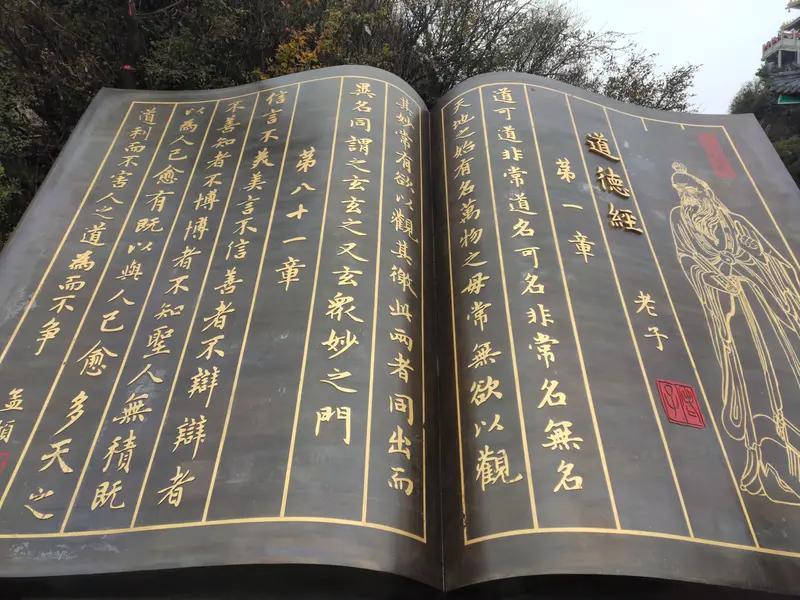 道德經
老子
老子
第一章
道可道非常道名可名非常名無名
天地之始有名萬物之母常無欲以觀
其妙常有欲以觀其徼此兩者同出而
異名同謂之玄玄之又玄衆妙之門
第八十一章
信言不美美言不信善者不辯辯者
不善知者不博博者不知聖人無積既
以為人己愈有既以與人己愈多天之
道利而不害人之道為而不争
孟頫